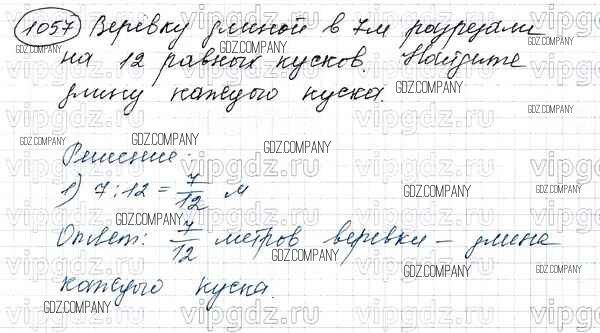 1057 Веревку длиной в 7м разрезали
на 12 равных кусков. Найдите
длину каждого куска.
Решение:
1) 7 : 12 = 7/12 м
Ответ: 7/12 метров веревки – длина
каждого куска.
GDZ.COMPANY
vipgdz.ru